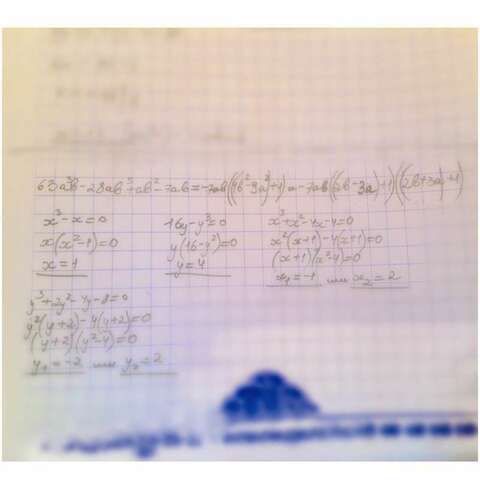 63a³b - 28ab³ + ab² - 7ab = -7ab((4b² - 9a²)+1) = -7ab((2b - 3a)+1)((2b+3a)+1)
x³ - x = 0
x(x² - 1) = 0
x = 1
16y - y³ = 0
y(16 - y²) = 0
y = 4
x³ + x² - 4x - 4 = 0
x²(x+1) - 4(x+1) = 0
(x+1)(x² - 4) = 0
x₁ = -1 или x₂ = 2
y³ + 2y² - 4y - 8 = 0
y²(y+2) - 4(y+2) = 0
(y+2)(y² - 4) = 0
y₁ = -2 или y₂ = 2